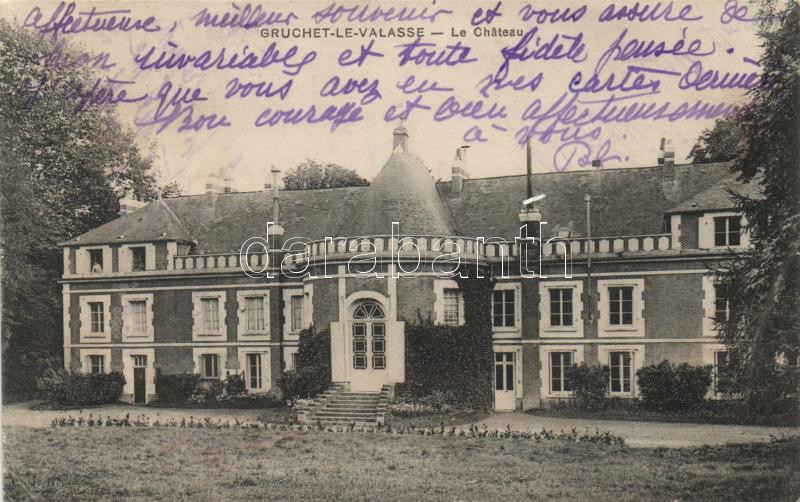 affectueuse, meilleur souvenir et vous assure de
mon invariable et toute fidèle pensée.
J'espère que vous avez eu mes cartes dernières
Bon courage et bien affectueusement
à vous
GRUCHET-LE-VALASSE — Le Château
darabanth